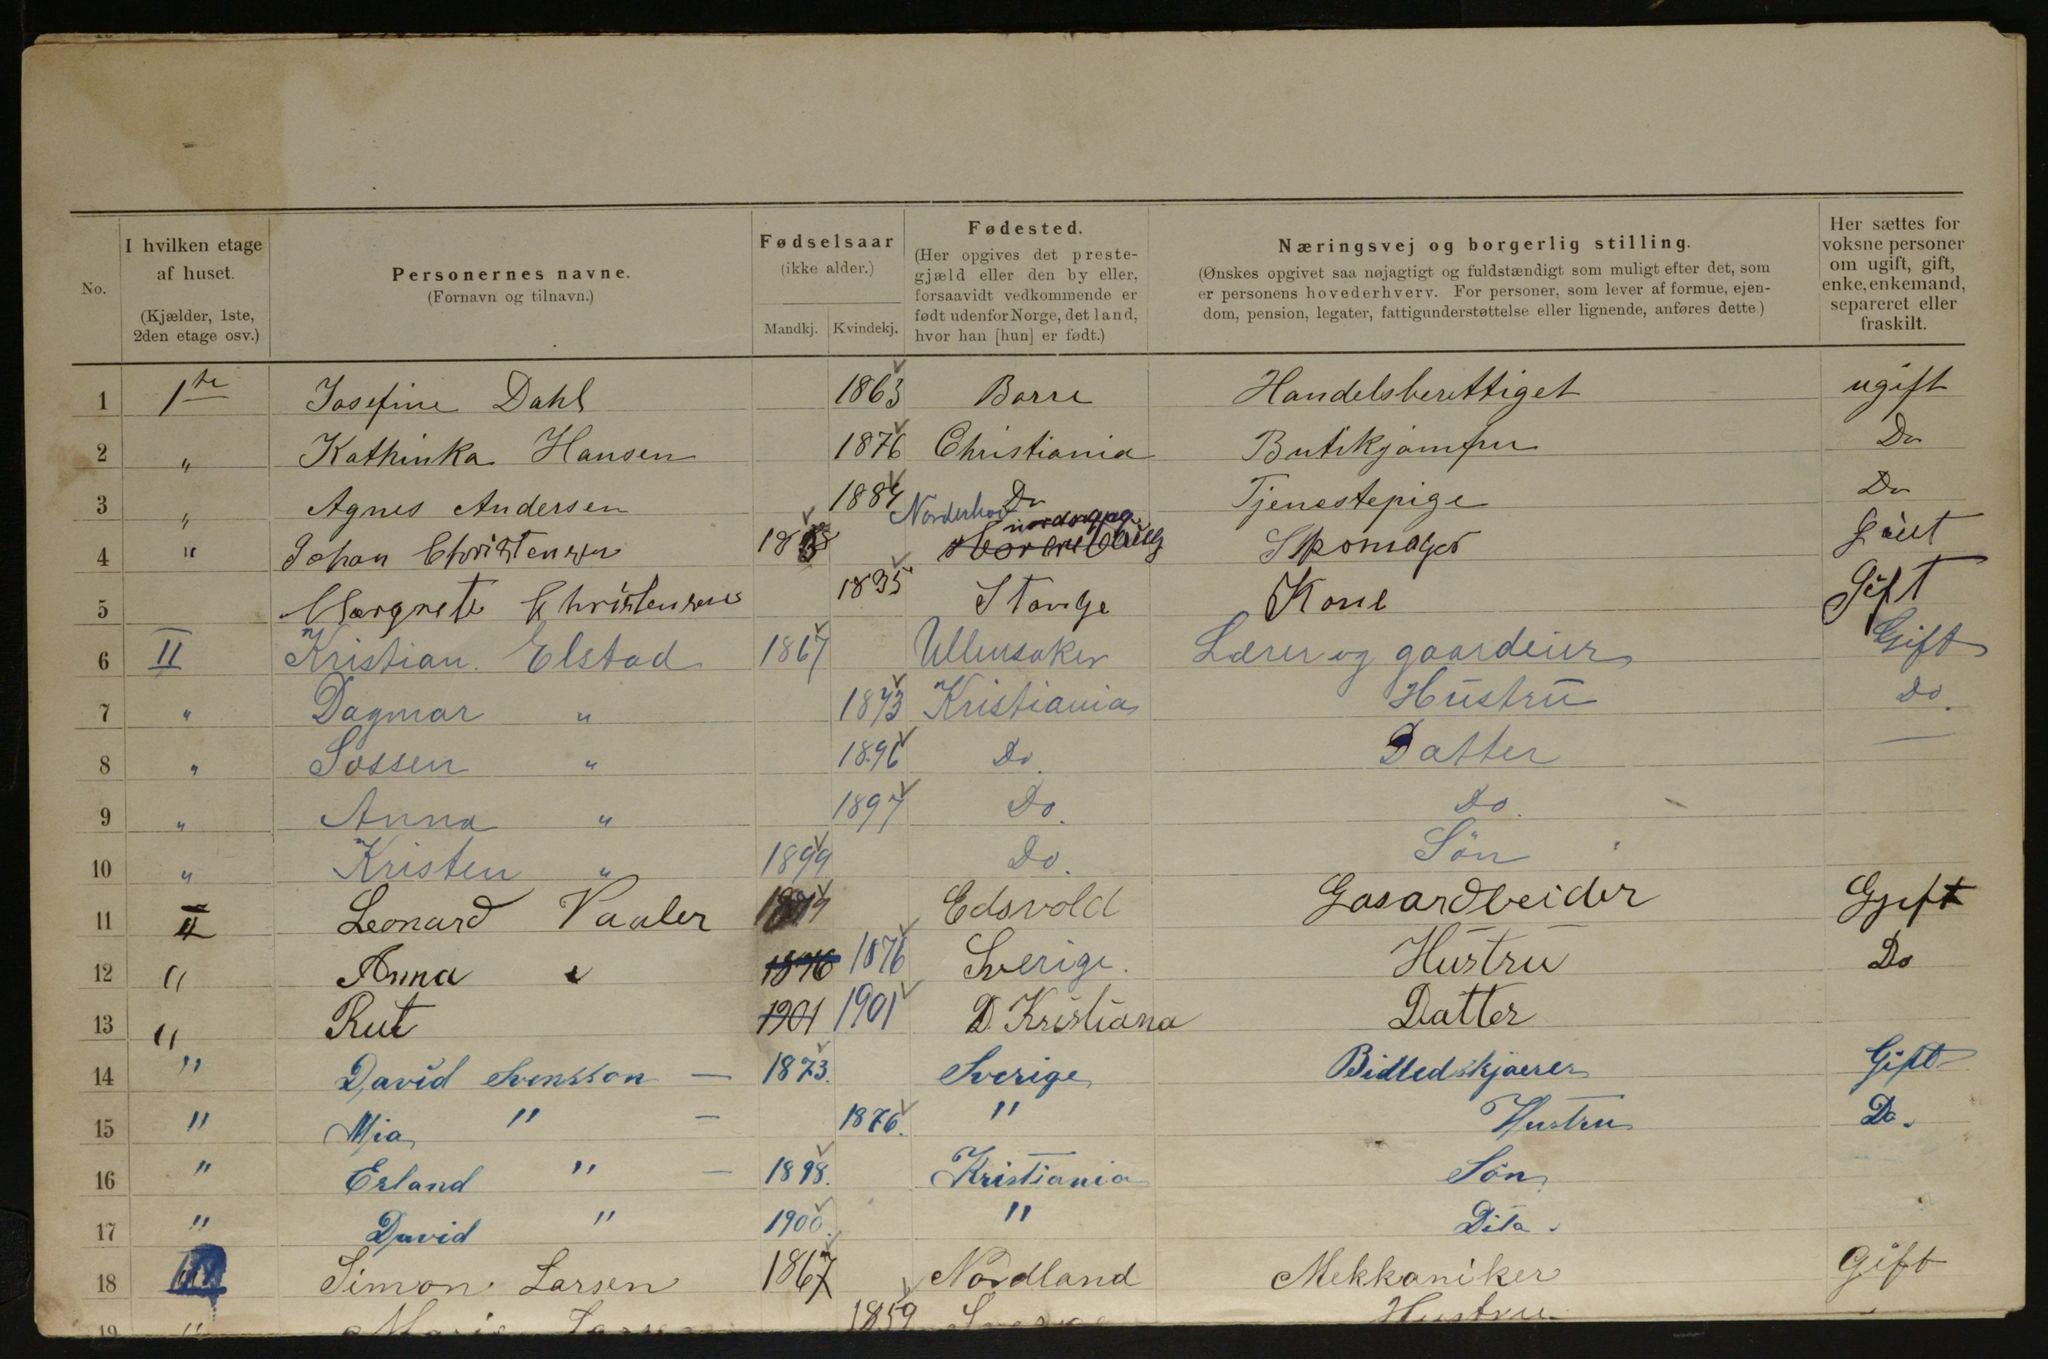 No.
I hvilken etage af huset.
(Kjælder, 1ste, 2den etage osv.)
Personernes navne.
(Fornavn og tilnavn.)
Fødselsaar
(ikke alder.)
Mandkj. Kvindekj.
Fødested.
(Her opgives det prestegjæld eller den by eller, forsaavidt vedkommende er født udenfor Norge, det land, hvor han [hun] er født.)
Næringsvej og borgerlig stilling.
(Ønskes opgivet saa nøjagtigt og fuldstændigt som muligt efter det, som er personens hovederhverv. For personer, som lever af formue, ejendom, pension, legater, fattigunderstøttelse eller lignende, anføres dette)
Her sættes for voksne personer om ugift, gift, enke, enkemand, separeret eller fraskilt.
1 1ste Josefine Dahl 1863 Borre Handelsberettiget ugift
2 " Kathinka Hansen 1876 Christiania Butikjomfru Do
3 " Agnes Andersen 1884 Do Tjenestepige Do
4 " Johan Christensen Norderhov Skomager
5 Margrete Christensen 1835 Stange Kone Gift
6 II Kristian Elstad 1867 Ullensaker Lærer og gaardeier Gift
7 " Dagmar " 1873 Kristiania Hustru Do.
8 " Sossen " 1896 Do. Datter —
9 " Anna " 1897 Do. Do.
10 " Kristen " 1899 Do. Søn
11 II Leonard Vaaler Edsvold Gasardbeider Gjift
12 " Anna " 1876 1876 Sverige. Hustru Do
13 " Rut 1901 1901 D. Kristiana Datter
14 " David Svensson — 1873. Sverige Billedskjærer Gift
15 " Mia " — 1876. " Hustru Do.
16 " Erland " — 1898. Kristiania Søn
17 " David " 1900. " Dito.
18 Simon Larsen 1867 Nordland Mekkaniker Gift
19 " Marie Larsen 1859 Sverige Hustru